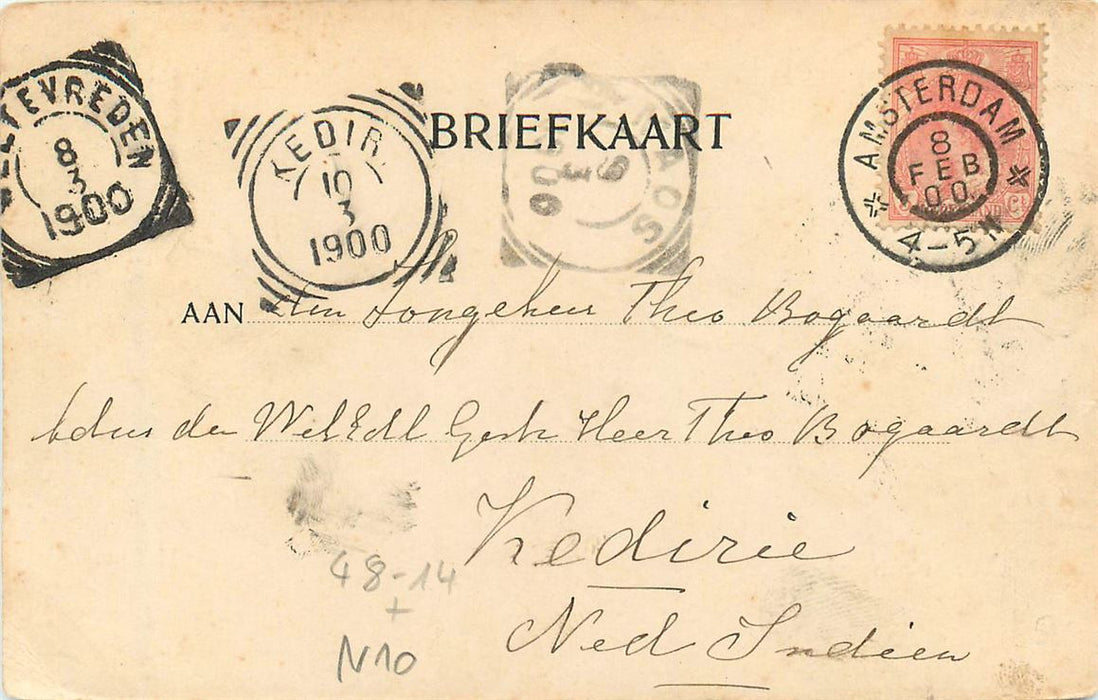 WELTEVREDEN
8
3
1900
KEDIRI
10
3
1900
MAOS
9
3
1900
AMSTERDAM
8
FEB
00
4-5N
BRIEFKAART
AAN den Jongeheer Theo Bogaardt
adres den WelEdl Gestr Heer Theo Bogaardt
Kedirie
Ned Indien
48-14
+
N10